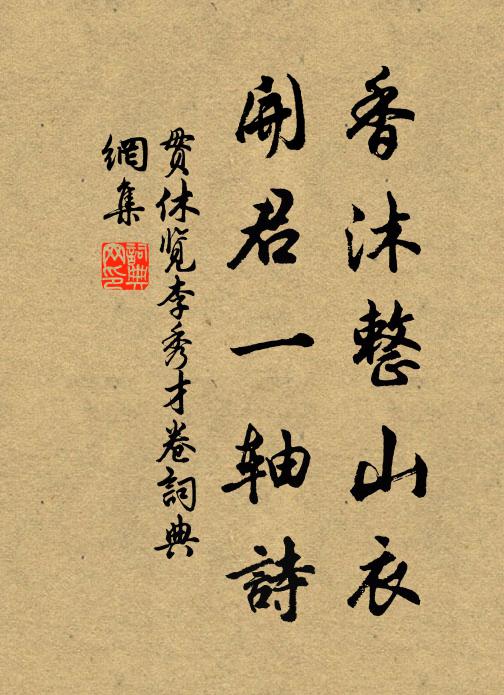 香沐整山衣
開君一轴詩
贯休览李秀才卷詞典
網集
詞典
网印